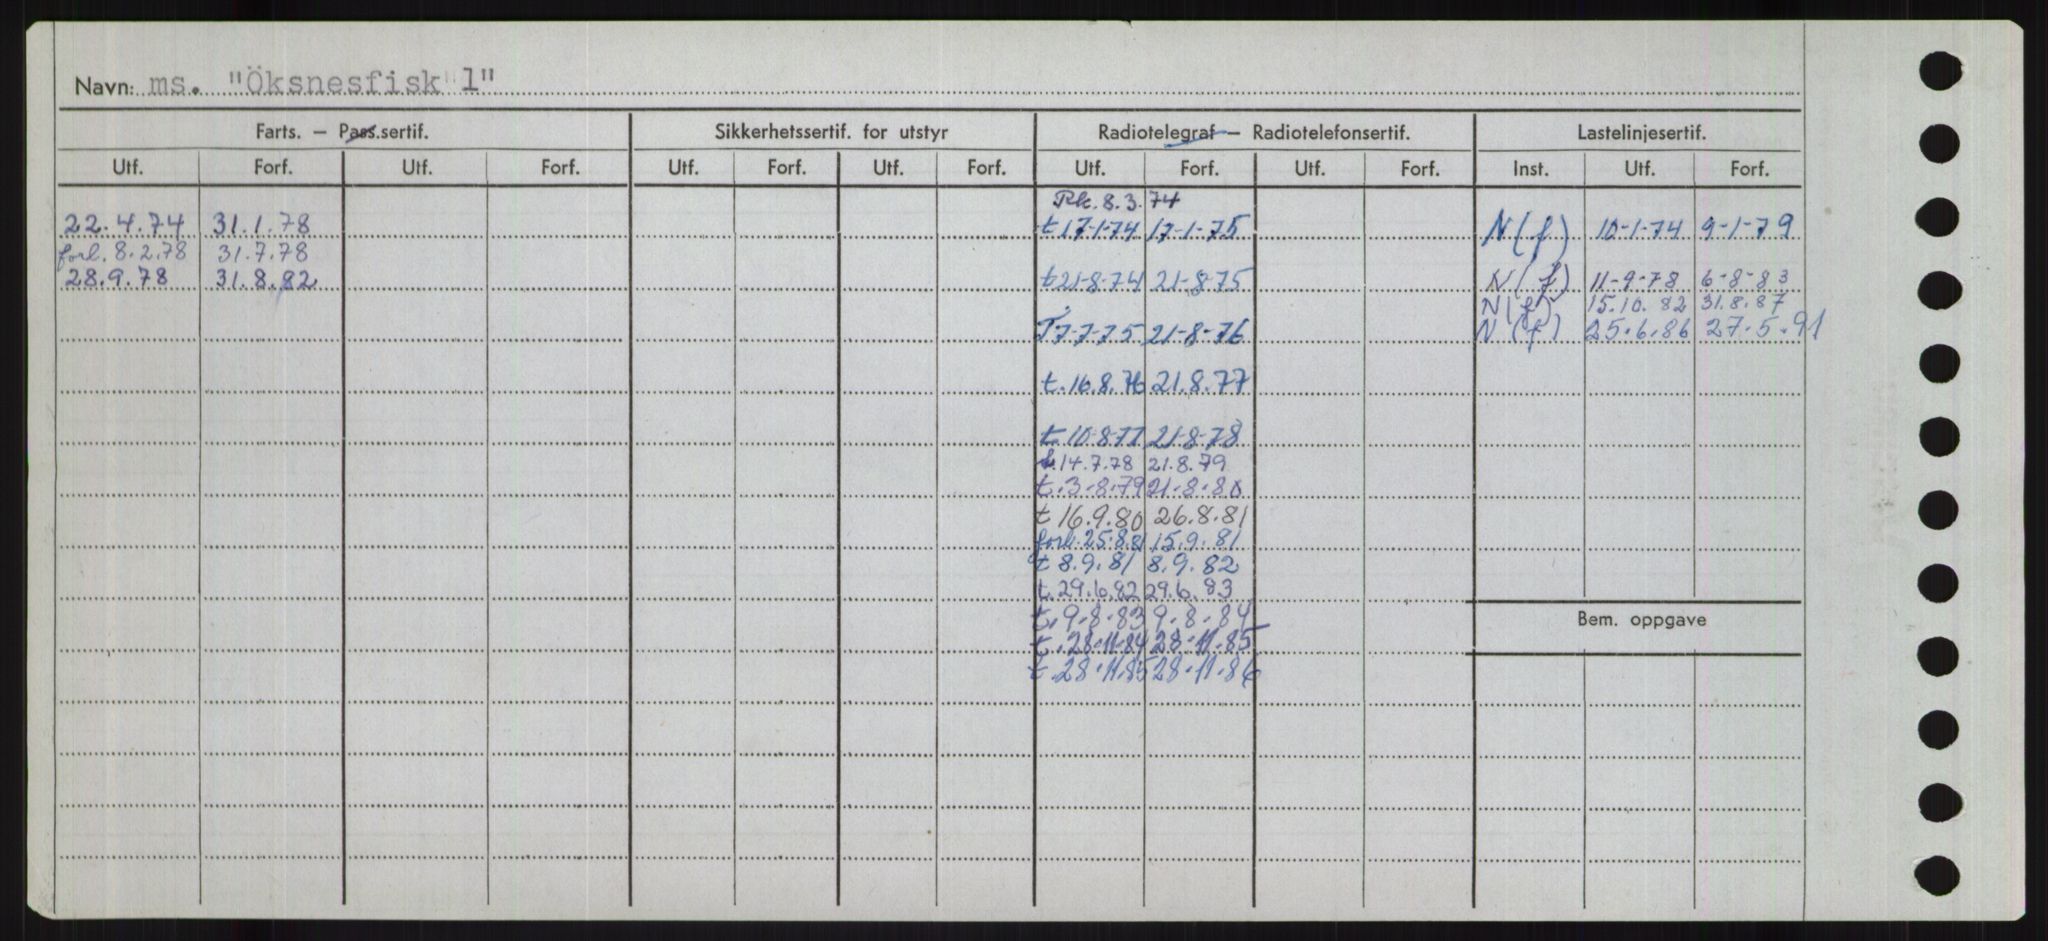 Navn: ms. "Öksnesfisk 1"
Farts. — Pass.sertif. Sikkerhetssertif. for utstyr Radiotelegraf — Radiotelefonsertif. Lastelinjesertif.
Utf. Forf. Utf. Forf. Utf. Forf. Utf. Forf. Utf. Forf. Utf. Forf. Inst. Utf. Forf.
Rk. 8.3.74
22.4.74 31.1.78 t 17-1-74 17-1-75 N(f) 10-1-74 9-1-79
forl. 8.2.78 31.7.78
28.9.78 31.8.82 t 21-8-74 21-8-75 N(f) 11-9-78 6-8-83
N(f) 15.10.82 31.8.87
T 7-7-75 21-8-76 N(f) 25.6.86 27.5.91
t. 16.8.76 21.8.77
t 10-8-77 21-8-78
t. 14.7.78 21.8.79
t. 3-8-79 21-8-80
t 16.9.80 26.8.81
forl. 25.8.81 15.9.81
t 8.9.81 8.9.82
t. 29.6.82 29.6.83
t. 9-8-83 9-8-84
t. 28-11-84 28-11-85
t. 28-11-85 28-11-86
Bem. oppgave